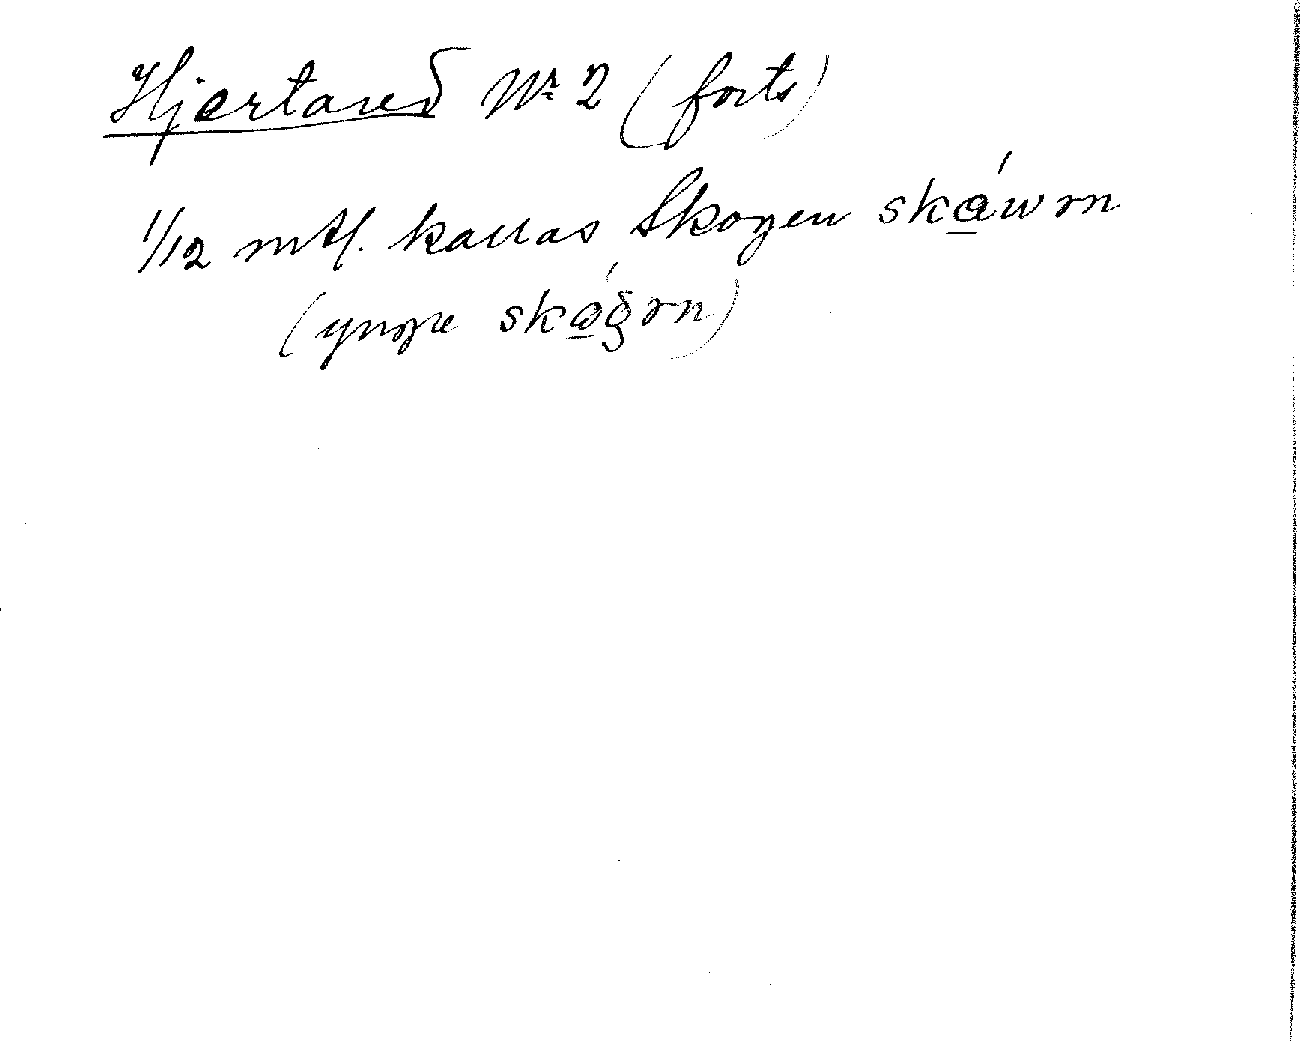 Hjertared Nr 2 (forts)
1/12 mtl. kallas Skogen ská̲wən
(yngre ská̲gən)